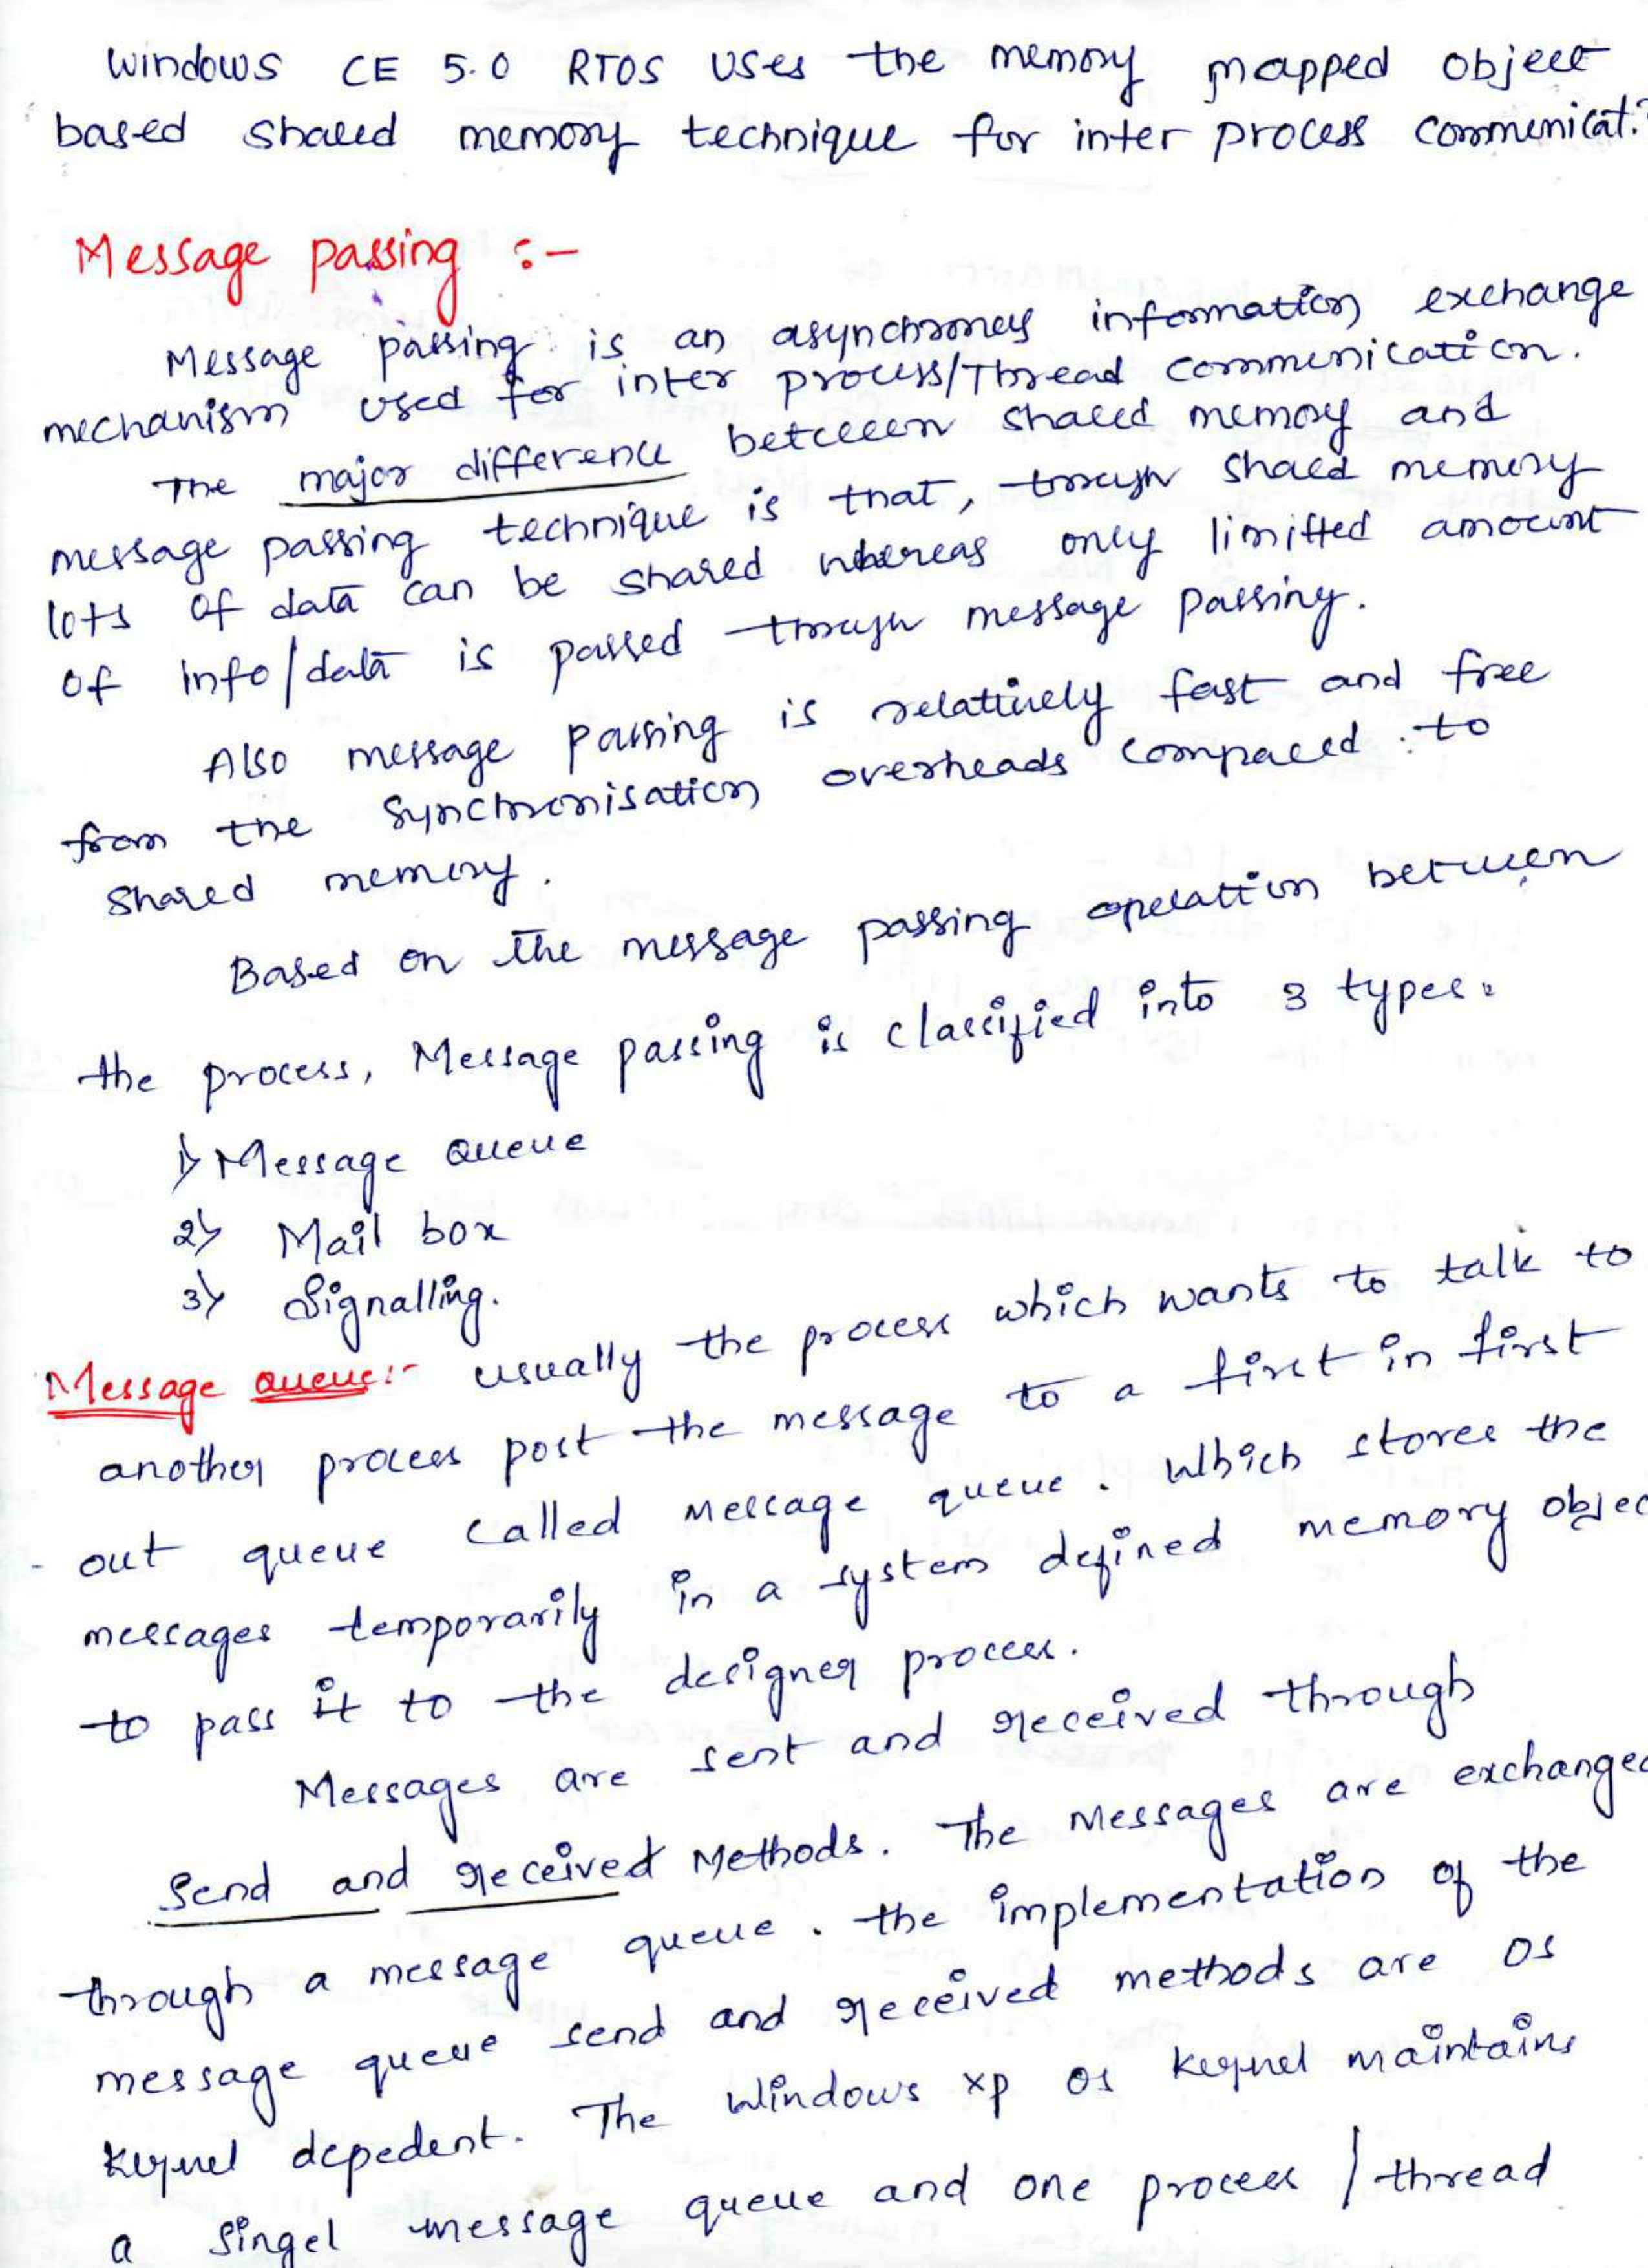 Windows CE 5.0 RTOS uses the memory mapped object
based shared memory technique for inter process communicat.
Message passing :-
Message passing is an asynchronous information exchange
mechanism used for inter process/Thread communication.
The major difference between shared memory and
message passing technique is that, through shared memory
lots of data can be shared whereas only limitted amount
of info/data is passed through message passing.
Also message passing is relatively fast and free
from the synchronisation overheads compared to
shared memory.
Based on the message passing operation between
the process, Message passing is classified into 3 types.
1) Message Queue
2) Mail box
3) Signalling.
Message Queue:- usually the process which wants to talk to
another process post the message to a first in first
- out queue called message queue. Which stores the
messages temporarily in a system defined memory objec
to pass it to the designer process.
Messages are sent and received through
Send and received Methods. The Messages are exchanged
through a message queue. the implementation of the
message queue send and received methods are OS
kernel depedent. The Windows xp OS kernel maintains
a singel message queue and one process / thread